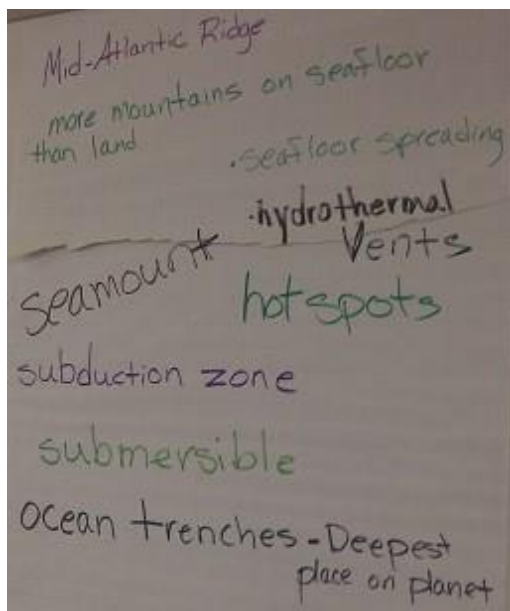 Mid-Atlantic Ridge
more mountains on seafloor
than land
.seafloor spreading
.hydrothermal
Vents
seamount
hotspots
subduction zone
submersible
ocean trenches - Deepest
place on planet